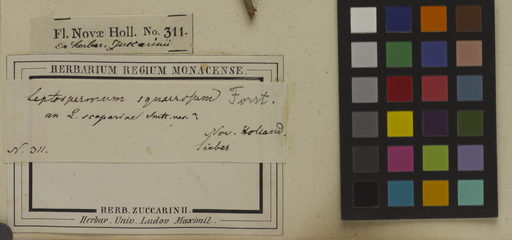 Fl. Novæ Holl. No. 311.
Ex herbar. Zuccarinii
HERBARIUM REGIUM MONACENSE.
Leptospermum squarrosum Forst.
an L. scopariae Smth. var.?
Nov. Holland.
N. 311. Sieber
HERB. ZUCCARINII.
Herbar. Univ. Ludov Maximil.